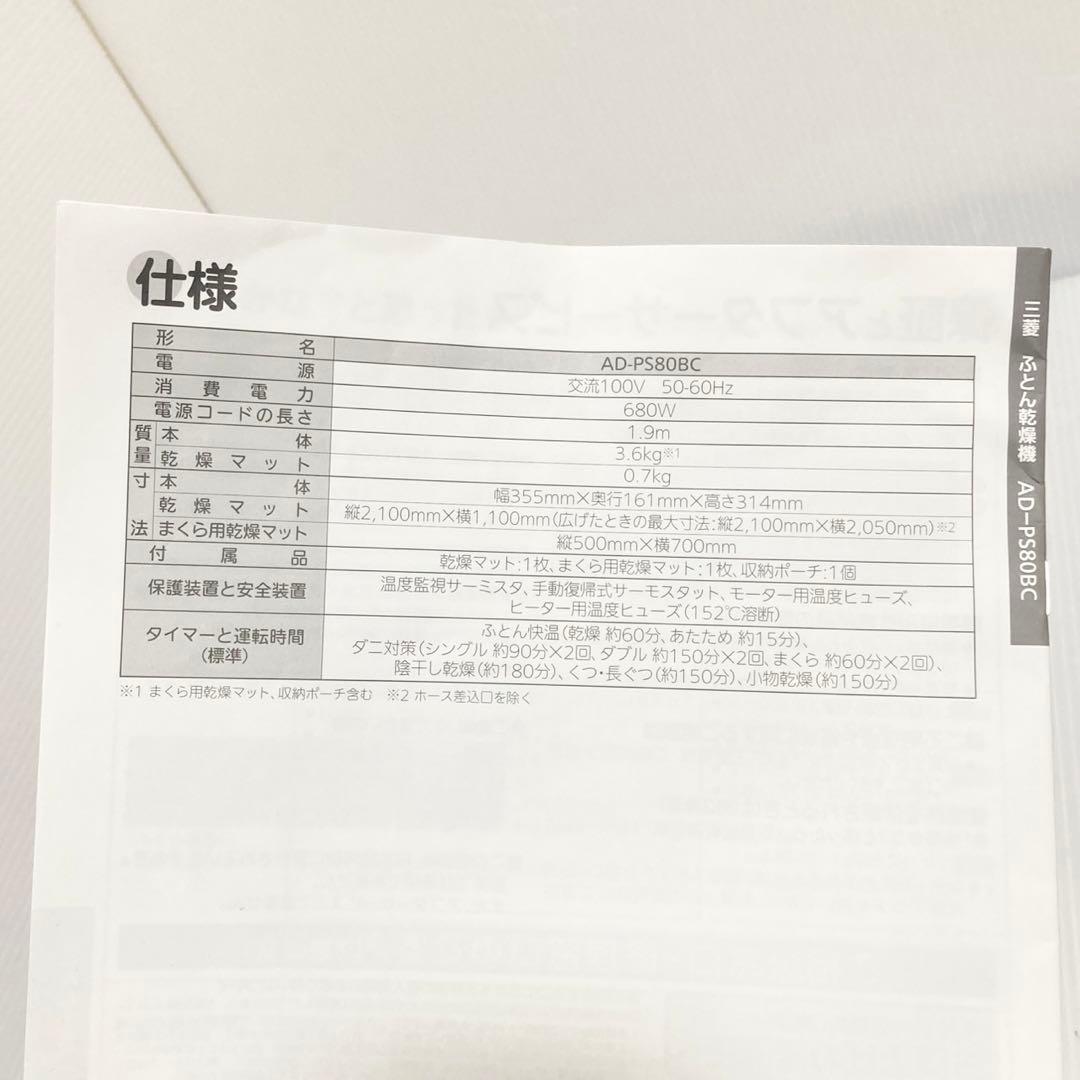 仕様
形名 AD-PS80BC
電源 交流100V 50-60Hz
消費電力 680W
電源コードの長さ 1.9m
質量 本体 3.6kg※1
乾燥マット 0.7kg
寸法 本体 幅355mm×奥行161mm×高さ314mm
乾燥マット 縦2,100mm×横1,100mm(広げたときの最大寸法:縦2,100mm×横2,050mm)※2
まくら用乾燥マット 縦500mm×横700mm
付属品 乾燥マット:1枚、まくら用乾燥マット:1枚、収納ポーチ:1個
保護装置と安全装置 温度監視サーミスタ、手動復帰式サーモスタット、モーター用温度ヒューズ、
ヒーター用温度ヒューズ(152℃溶断)
タイマーと運転時間
(標準)
ふとん快温(乾燥 約60分、あたため 約15分)、
ダニ対策(シングル 約90分×2回、ダブル 約150分×2回、まくら 約60分×2回)、
陰干し乾燥(約180分)、くつ・長ぐつ(約150分)、小物乾燥(約150分)
※1 まくら用乾燥マット、収納ポーチ含む ※2 ホース差込口を除く
三菱 ふとん乾燥機 AD-PS80BC